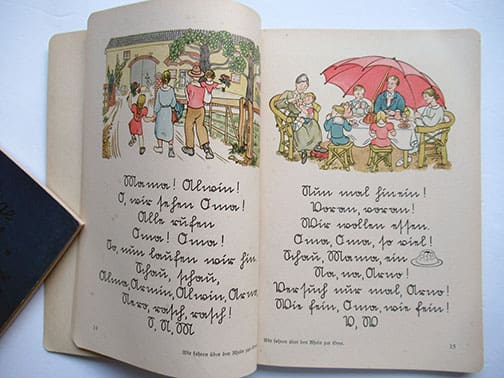 Mama! Alwin!
O, wir sehen Oma!
Alle rufen
Oma! Oma!
So, nun laufen wir hin.
Schau, schau,
Alma, Armin, Alwin, Arno,
Nero, rasch, rasch!
14
Wir fahren über den Rhein zur Oma.
Nun mal hinein!
Voran, voran!
Wir wollen essen.
Oma, Oma, so viel!
Schau, Mama, ein
Na, na, Arno!
Versuch nur mal, Arno!
Wie fein, Oma, wie fein!
V, W
Wir fahren über den Rhein zur Oma.
15